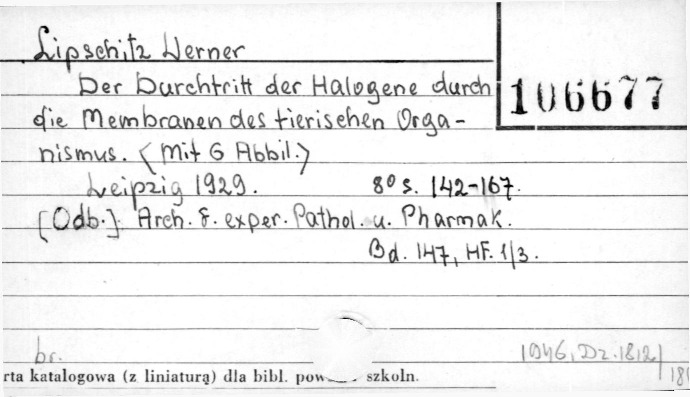 Lipschitz Werner
Der Durchtritt der Halogene durch
106677
die Membranen des tierischen Orga-
nismus. <Mit 6 Abbil.>
Leipzig 1929. 8° s. 142-167.
[Odb.] Arch. f. exper. Pathol. u. Pharmak.
Bd. 147, Hf. 1/3.
br.
1946, Dz. 1812/
rta katalogowa (z liniaturą) dla bibl. pow szkoln.